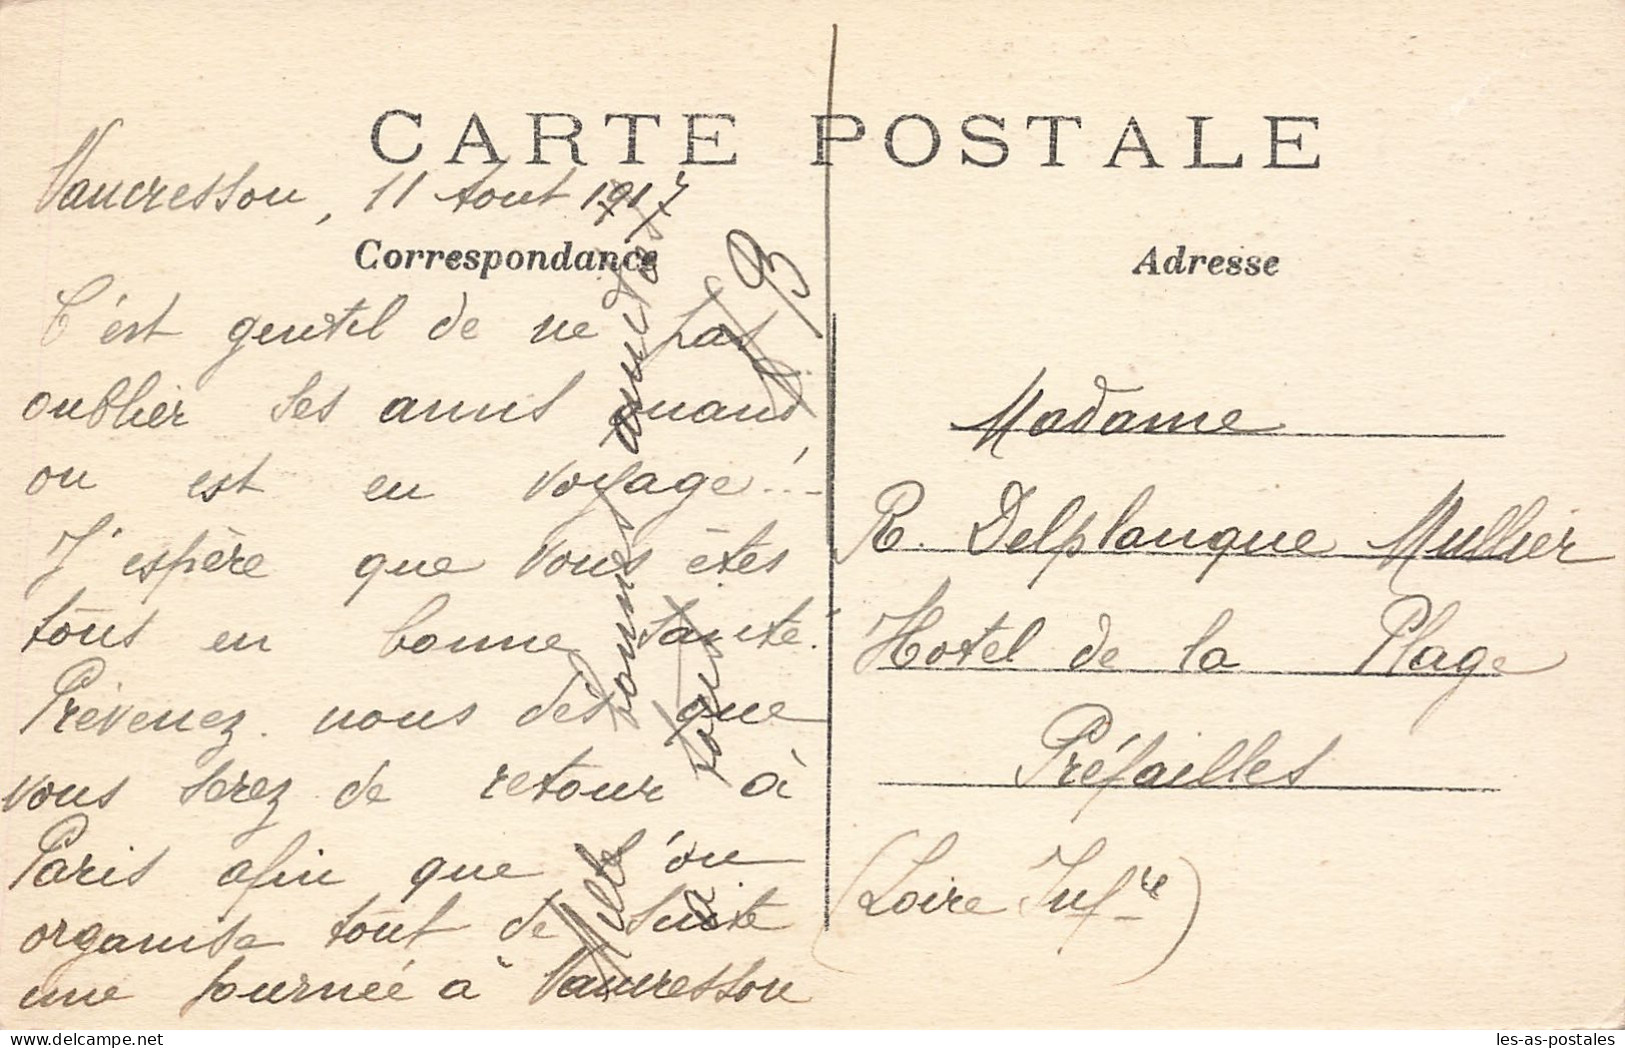 CARTE POSTALE
Vaucresson, 11 Aout 1917
Correspondance
Adresse
C'est gentil de ne pas
oublier ses amis quand
on est en voyage!
J'espère que vous êtes
tous en bonne santé.
Prévenez nous dès que
vous serez de retour à
Paris afin que l'on
organise tout de suite
une journée à Vaucresson
Mille bonnes amitiés
à tous
Madame
R. Delplanque Mullier
Hotel de la Plage
Préfailles
(Loire Infre)
delcampe.net
les-as-postales